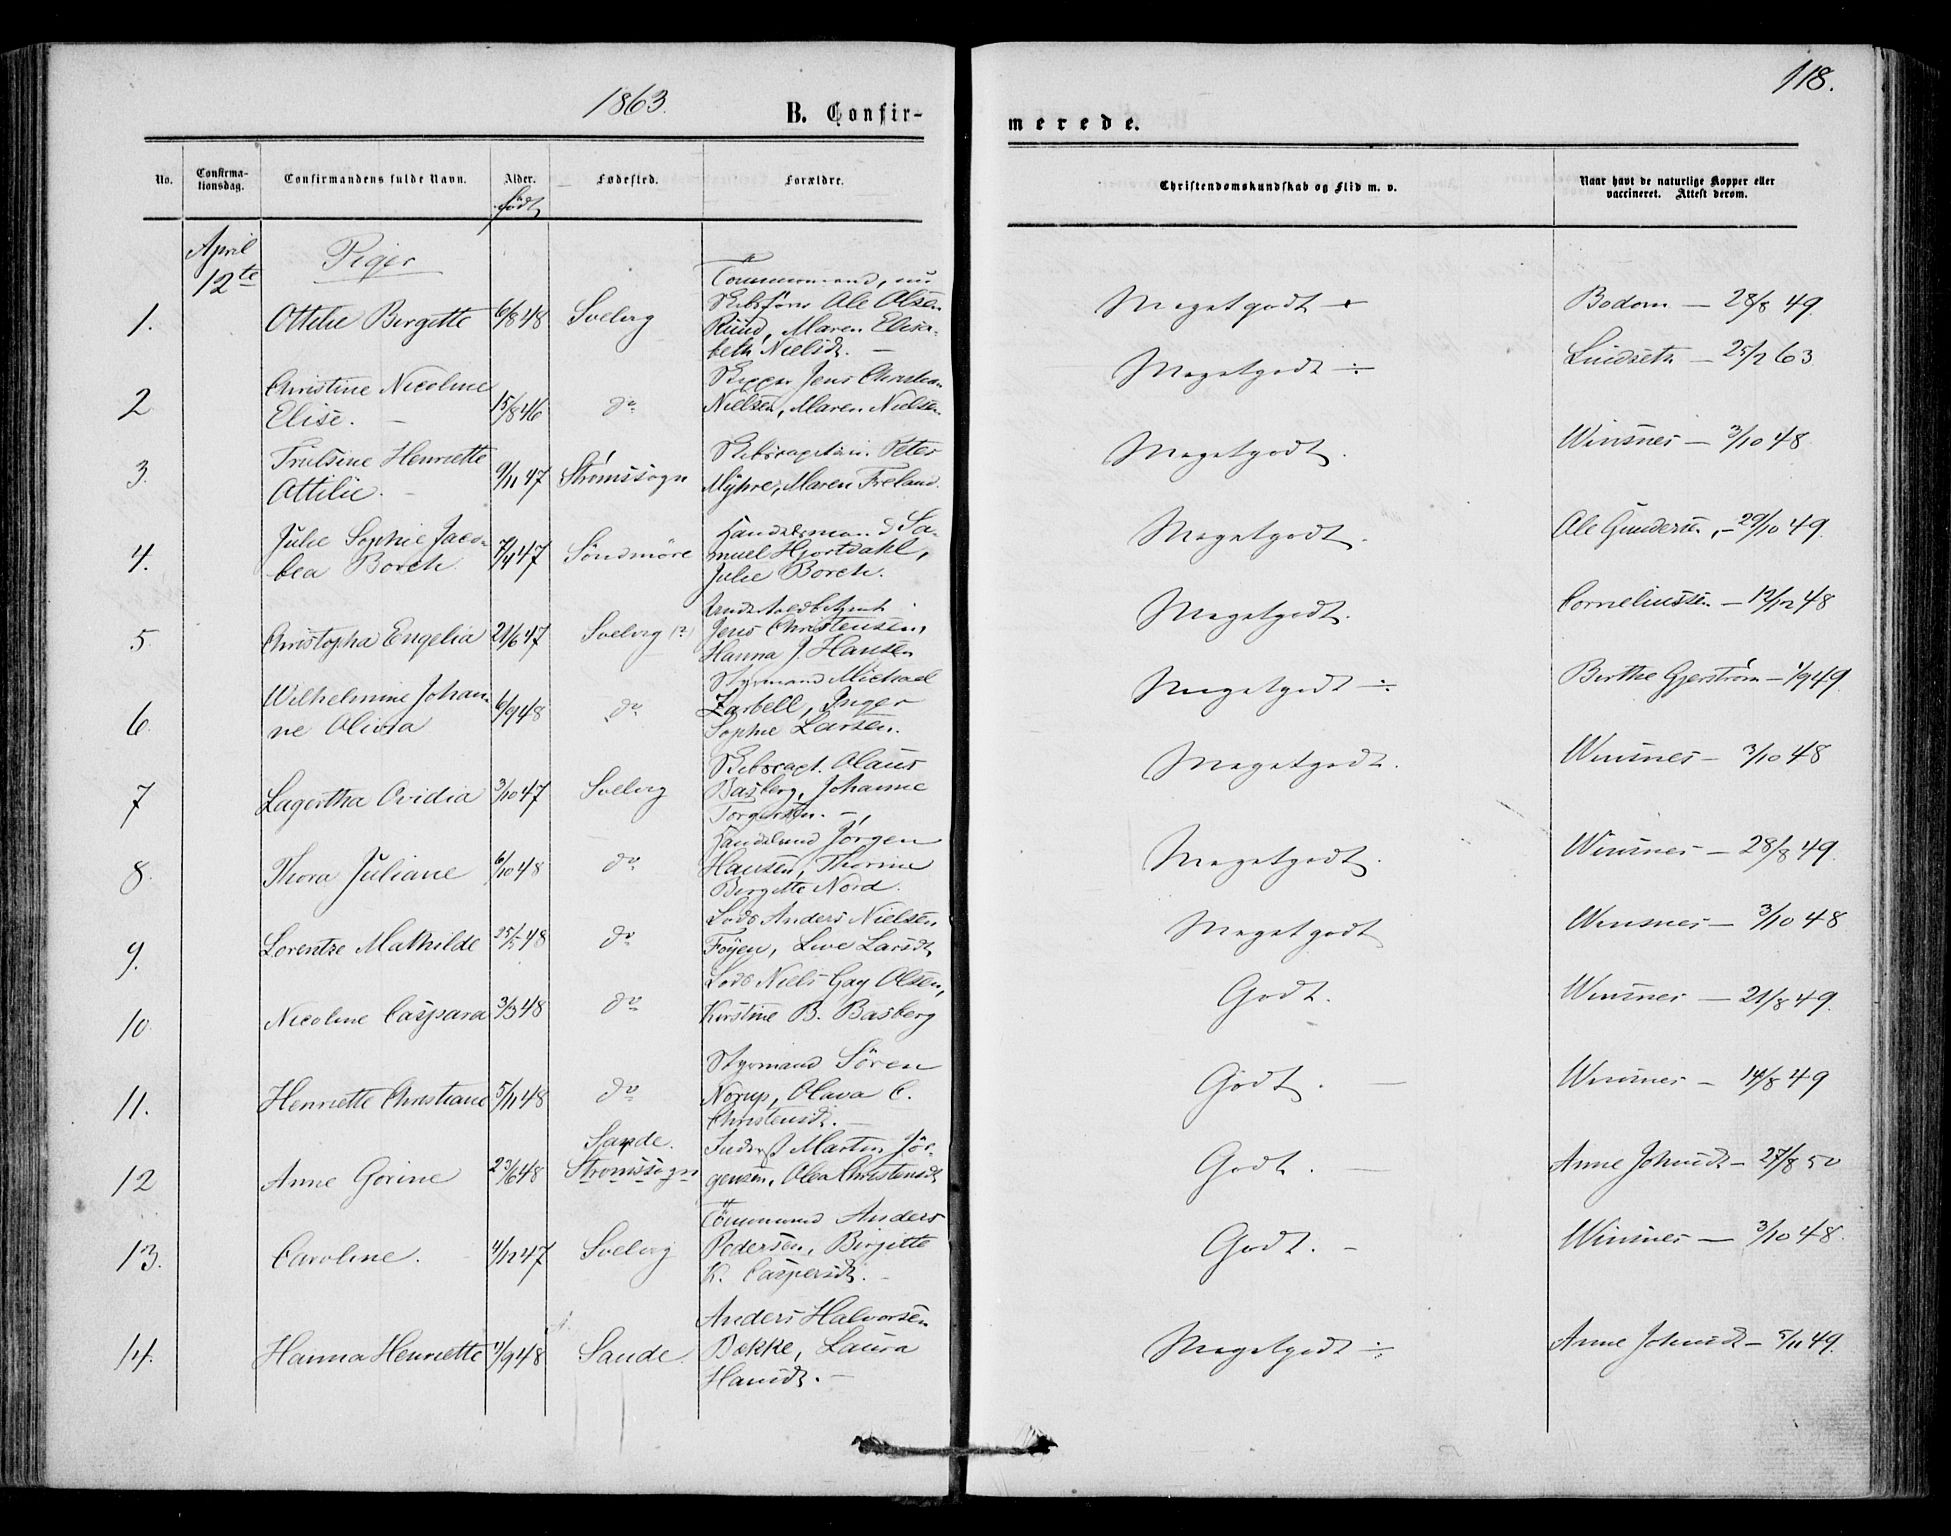 1863.
118.
B. Confir-
merede.
No.
Confirma-
tionsdag.
Confirmandens fulde Navn.
Alder.
født
Fødested.
Forældre.
Christendomskundskab og Flid m. v.
Naar havt de naturlige Kopper eller
vaccineret. Attest derom.
April
12te
Piger
1.
Ottilie Birgitte
6/8 48
Svelvig
Tömmermand, nu
Skibsförer Ole Olsen
Ruud, Maren Elisa-
beth Nielsdt. —
Megetgodt +
Bodom — 28/8 49.
2
Christine Nicoline
Elise. —
15/8 46
do
Skipper Jens Christian
Nielsen, Maren Nielsen
Megetgodt ÷
Lindseth — 25/2 63
3.
Trulsine Henriette
Ottilie. —
9/11 47
Strömssogn
Skibscapitain Peter
Myhre, Maren Freland.
Megetgodt.
Winsnes — 3/10 48.
4.
Julie Sophie Jaco-
bea Borch.
7/4 47
Söndmöre
Handelsmand Sa-
muel Hjortdahl,
Julie Borch.
Megetgodt.
Ole Gundersen, — 29/10 49.
5
Christopha Engelia
21/6 47
Svelvig (?)
Jens Christensen,
Hanna J. Hansen
Megetgodt.
Corneliussen — 12/12 48
6
Wilhelmine Johan-
ne Olivia
6/9 48
do
Styrmand Michael
Zarbell, Inger
Sophie Larsen.
Megetgodt ÷
Birthe Gjerström — 1/9 49.
7
Lagertha Ovidia
3/10 47
Svelvig
Skibscapt. Olaus
Basberg, Johanne
Torgersen. —
Megetgodt.
Winsnes — 3/10 48
8.
Thora Juliane
6/10 48
do
Handelsmd Jörgen
Hansen, Thorine
Birgitte Nord.
Megetgodt.
Winsnes — 28/8 49.
9.
Lorentze Mathilde
25/5 48
do
Lods Anders Nielsen
Föyen, Live Larsdt.
Megetgodt
Winsnes — 3/10 48
10.
Nicoline Caspara
3/3 48
do
Lods Niels Gay Olsen,
Kirstine B. Basberg
Godt.
Winsnes — 21/8 49.
11.
Henriette Christiane
5/11 48
do
Styrmand Sören
Norup, Olava C.
Christensdt. —
Godt. —
Winsnes — 14/8 49
12
Anne Gorine
23/6 48
Sande.
Strömssogn
Inderst Martin Jör-
gensen, Olea Christensdt
Godt. —
Anne Johnsdt — 27/8 50
13.
Caroline. —
4/12 47
Svelvig
Tömmermand Anders
Pedersen, Birgitte
K. Caspersdt. —
Godt. —
Winsnes — 3/10 48.
14.
Hanna Henriette
4/9 48
Sande.
Anders Halvorsen
Bekke, Laura
Hansdt. —
Megetgodt ÷
Anne Johnsdt — 5/11 49.